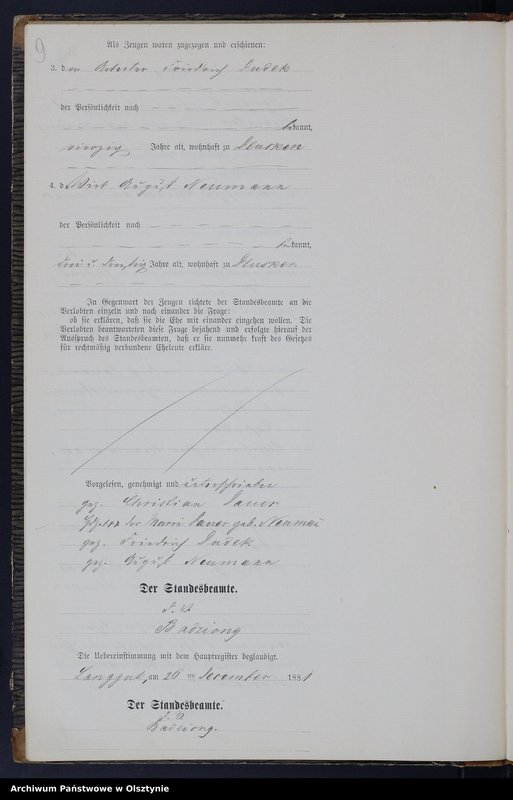 9
Als Zeugen waren zugezogen und erschienen:
3. der Arbeiter Friedrich Dudek
der Persönlichkeit nach
bekannt,
vierzig Jahre alt, wohnhaft zu Plusken
4. d Wirt August Neumann
der Persönlichkeit nach
bekannt,
drei u. dreißig Jahre alt, wohnhaft zu Plusken
In Gegenwart der Zeugen richtete der Standesbeamte an die
Verlobten einzeln und nach einander die Frage:
ob sie erklären, daß sie die Ehe mit einander eingehen wollen. Die
Verlobten beantworteten diese Frage bejahend und erfolgte hierauf der
Ausspruch des Standesbeamten, daß er sie nunmehr kraft des Gesetzes
für rechtmäßig verbundene Eheleute erkläre.
Vorgelesen, genehmigt und unterschrieben
gez. Christian Sauer
Hdz. +++ der Marri Sauer geb. Neumann
gez. Friedrich Dudek
gez. August Neumann
Der Standesbeamte.
J. V.
Badziong
Die Uebereinstimmung mit dem Hauptregister beglaubigt.
Langgut, am 26 ten December 1881
Der Standesbeamte.
J. V.
Badziong.
Archiwum Państwowe w Olsztynie